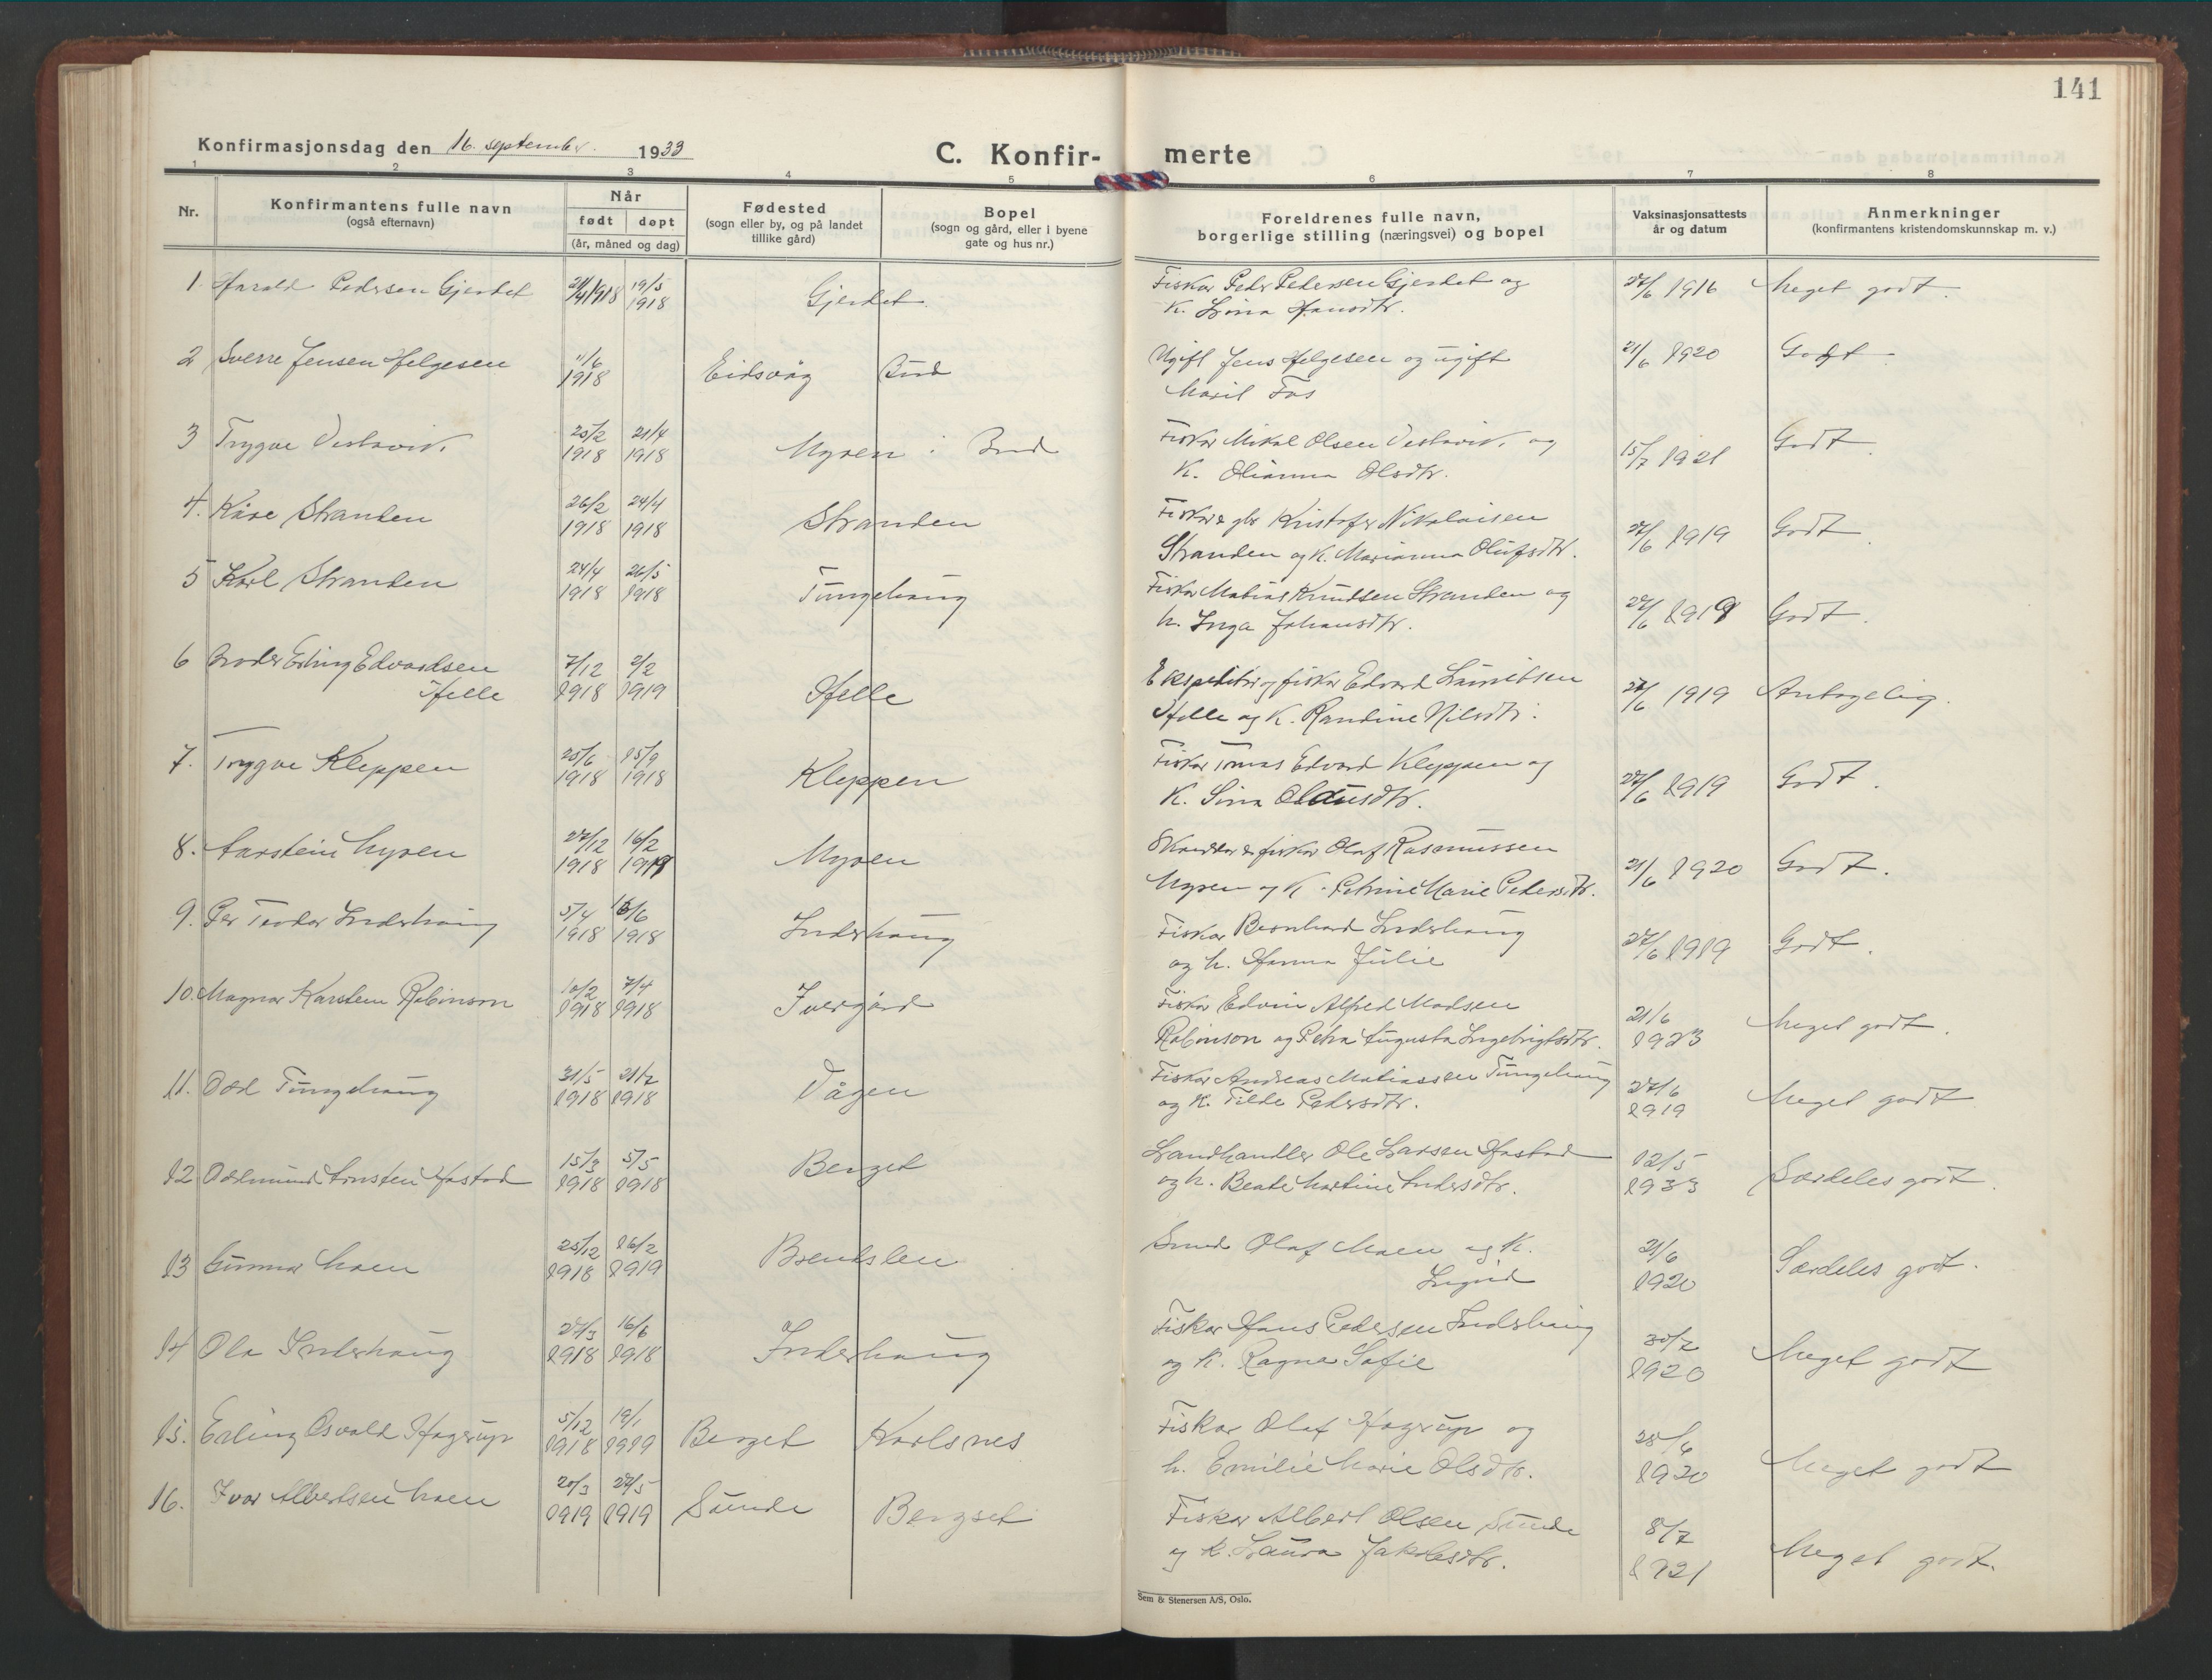 141
Konfirmasjonsdag den 16. september. 1933
C. Konfir- merte
1 2 3 4 5 6 7 8
Nr.
Konfirmantens fulle navn
(også efternavn)
Når
født døpt
(år, måned og dag)
Fødested
(sogn eller by, og på landet
tillike gård)
Bopel
(sogn og gård, eller i byene
gate og hus nr.)
Foreldrenes fulle navn,
borgerlige stilling (næringsvei) og bopel
Vaksinasjonsattests
år og datum
Anmerkninger
(konfirmantens kristendomskunnskap m. v.)
1. Harald Pedersen Gjerdet 19/5 1918 Gjerdet.
Fisker Peder Pedersen Gjerdet og
K. Lina Hansdtr.
27/6 1916 Meget godt.
2 Sverre Jensen Helgesen 11/6 1918 Eidsvåg Bud
Ugift Jens Helgesen og ugift
Marit Fos
21/6 1920 Godt
3 Trygve Vestavik. 25/2 1918 21/4 1918 Myren i Bud
Fisker Mikal Olsen Vestavik. og
K. Olianna Olsdtr.
15/7 1921 Godt.
4. Kåre Stranden 26/2 1918 24/4 1918 Stranden
Fisker & gbr Kristofer Nikolaisen
Stranden og K. Marianna Olufsdtr.
27/6 1919 Godt.
5 Karl Stranden 24/4 1918 26/5 1918 Tungehaug
Fisker Matias Knudsen Stranden og
h. Inga Johansdtr.
27/6 1919 Godt.
6 Broder Erling Edvardsen
Helle 7/12 1918 2/2 1919 Helle
Ekspeditør og fisker Edvard Lauritsen
Helle og K. Randine Nilsdtr.
27/6 1919 Antagelig.
7. Trygve Kleppen 25/6 1918 15/9 1918 Kleppen
Fisker Tomas Edvard Kleppen og
K. Sina Olausdtr.
27/6 1919 Godt.
8. Aarstein Myren 27/12 1918 16/2 1919 Myren
Skredder & fisker Olaf Rasmussen
Myren og K. Petrine Marie Pedersdtr.
21/6 1920 Godt.
9. Per Teodor Inderhaug 5/4 1918 16/6 1918 Inderhaug
Fisker Bernhard Inderhaug
og h. Hanna Julie
27/6 1919 Godt.
10. Magnar Karsten Robinson 10/2 1918 7/4 1918 Ivergård
Fisker Edvin Alfred Madsen
Robinson og Petra Augusta Ingebrigtsdtr.
21/6 1923 Meget godt.
11. Odd Tungehaug 31/5 1918 21/7 1918 Vågen
Fisker Andreas Matiassen Tungehaug
og K. Tilde Pedersdtr.
27/6 1919 Meget godt
12 Oddmund Arnsten Hostad 15/3 1918 5/5 1918 Berget
Landhandler Ole Larsen Hostad
og h. Beate Martine Andersdtr.
12/5 1933 Særdeles godt.
13 Gunnar Moen 25/12 1918 16/2 1919 Brendslen
Smed Olaf Moen og K.
Ingrid
21/6 1920 Særdeles godt.
14 Ola Inderhaug 27/3 1918 16/6 1918 Inderhaug
Fisker Hans Pedersen Inderhaug
og K. Ragna Sofie
30/7 1920 Meget godt
15. Erling Osvald Hagerup 5/12 1918 19/1 1919 Berget Karlsnes
Fisker Olaf Hagerup og
h. Emilie Marie Olsdtr.
28/6 1920 Meget godt
16. Ivar Albertsen Moen 20/3 1919 27/5 1919 Sunde Bergset
Fisker Albert Olsen Sunde
og K. Laura Jakobsdtr.
8/7 1921 Meget godt.
Sem & Stenersen A/S, Oslo.